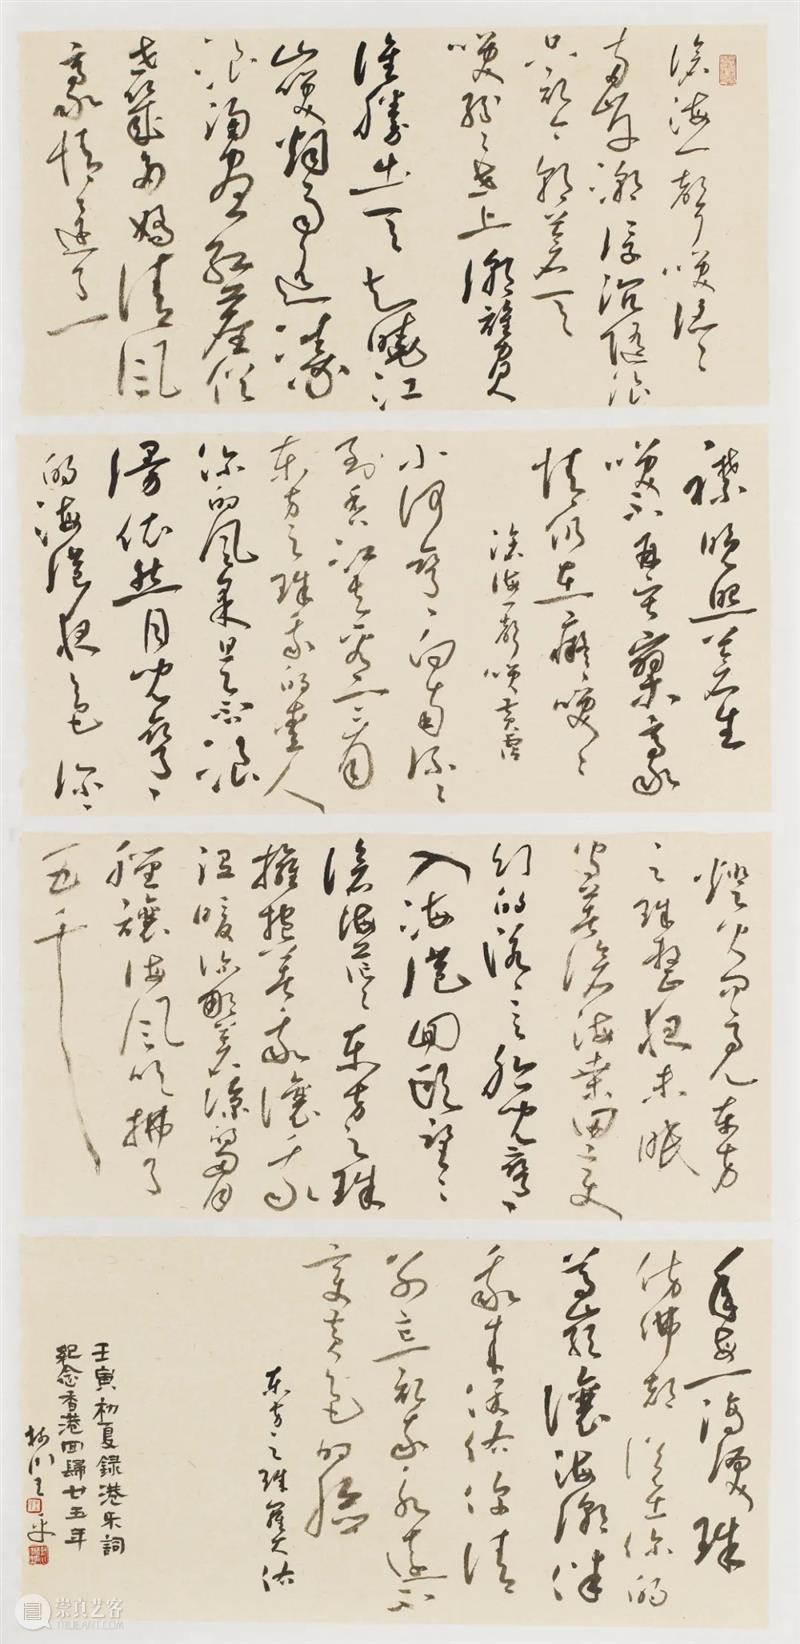 滄海一聲笑滔〻
兩岸潮浮沉隨浪
只記今朝蒼天
笑紛〻世上潮誰負
誰勝出天知曉江
山笑煙雨遙濤
浪淘盡紅塵俗
世幾多嬌清風
豪情還了一
襟晚照蒼生
笑不再寂寥豪
情仍在癡〻笑〻
滄海一聲笑黃霑
小河彎〻向南流〻
到香江去看一看
东方之珠我的愛人
你的風采是否浪
漫依然月兒彎〻
的海港夜色深〻
燈火閃亮东方
之珠整夜未眠
守著滄海桑田變
幻的諾言船兒彎〻
入海港回頭望〻
滄海茫〻东方之珠
擁抱著我讓我
溫暖你那蒼涼胸
膛讓海風吹拂了
五千
年每一滴淚珠
仿佛都說出你的
尊嚴讓海潮伴
我來保佑你請
别忘記我永遠不
變黃色的臉
东方之珠羅大佑
壬寅初夏錄港乐詞
紀念香港回歸廿五年
崇真艺客